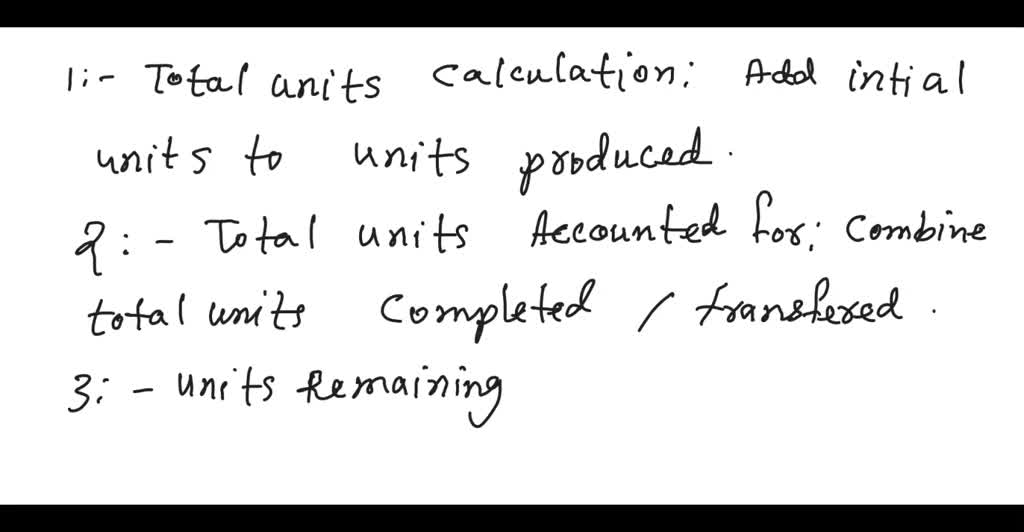 1:- Total units Calculation: Add intial
units to units produced.
2:- Total units Accounted for: Combine
total units Completed / transfered.
3:- units Remaining